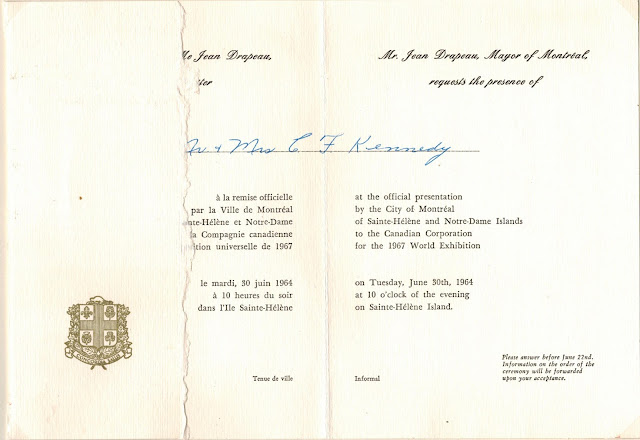 Me Jean Drapeau,
Mr. Jean Drapeau, Mayor of Montréal,
requests the presence of
& Mrs C F Kennedy
à la remise officielle
par la Ville de Montréal
et Notre-Dame
la Compagnie canadienne
universelle de 1967
le mardi, 30 juin 1964
à 10 heures du soir
dans l'Ile Sainte-Hélène
Tenue de ville
at the official presentation
by the City of Montréal
of Sainte-Hélène and Notre-Dame Islands
to the Canadian Corporation
for the 1967 World Exhibition
on Tuesday, June 30th, 1964
at 10 o'clock of the evening
on Sainte-Hélène Island.
Informal
Please answer before June 22nd.
Information on the order of the
ceremony will be forwarded
upon your acceptance.